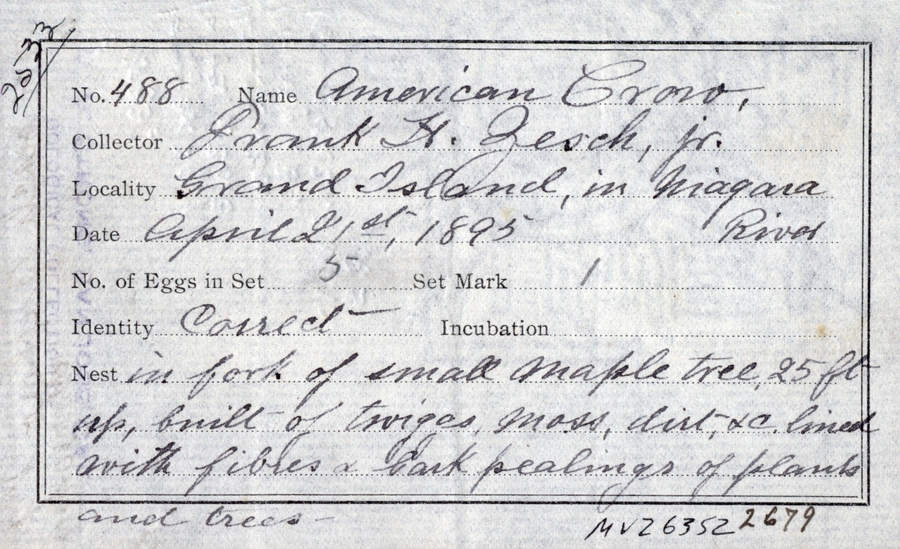 No. 488 Name American Crow,
Collector Frank H. Zesch, jr.
Locality Grand Island, in Niagara
Date April 21st, 1895 River
No. of Eggs in Set 5 Set Mark 1
Identity Correct Incubation
Nest in fork of small maple tree, 25 ft
up, built of twigs, moss, dirt, &c. lined
with fibres & bark pealings of plants
and trees
MVZ 6352 2679